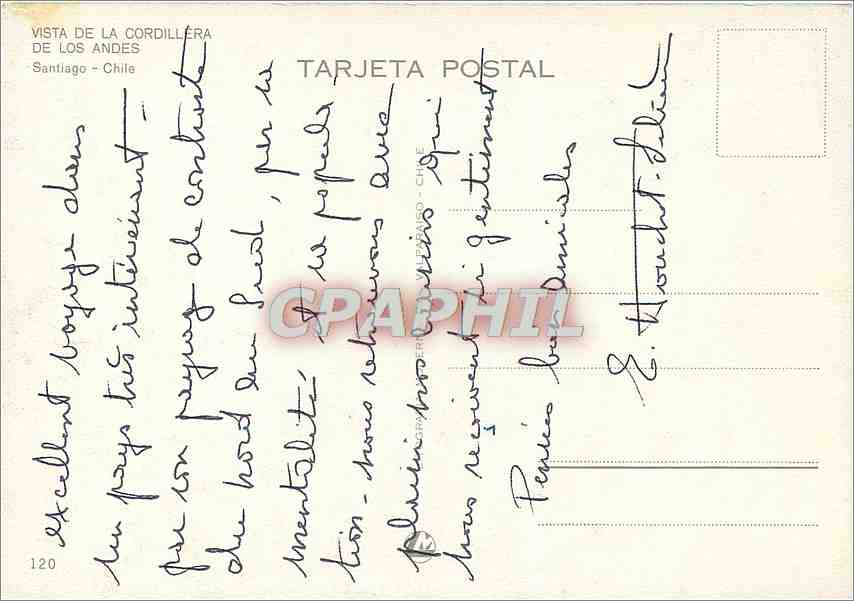 VISTA DE LA CORDILLERA
DE LOS ANDES
Santiago - Chile
TARJETA POSTAL
excellent voyage dans
un pays très intéressant -
par son paysage de contraste
du nord au sud, par sa
mentalité, et sa popula-
tion - nous retrouvons avec
plaisir nos cousins qui
nous reçoivent si gentiment
Pensées bien amicales
E.
VALPARAISO - CHILE
CPAPHIL
120